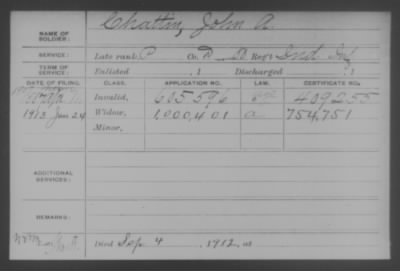 NAME OF SOLDIER: Chattin, John A.
SERVICE: Late rank, Co. D, Reg't Ind. Inf
TERM OF SERVICE: Enlisted , 1 Discharged , 1
DATE OF FILING. CLASS. APPLICATION NO. LAW. CERTIFICATE NO.
Invalid, 605,596 409255
1912 Widow, 1,000,401 a 754,751
Minor,
ADDITIONAL SERVICES:
REMARKS:
Died Sep. 4, 1912, at